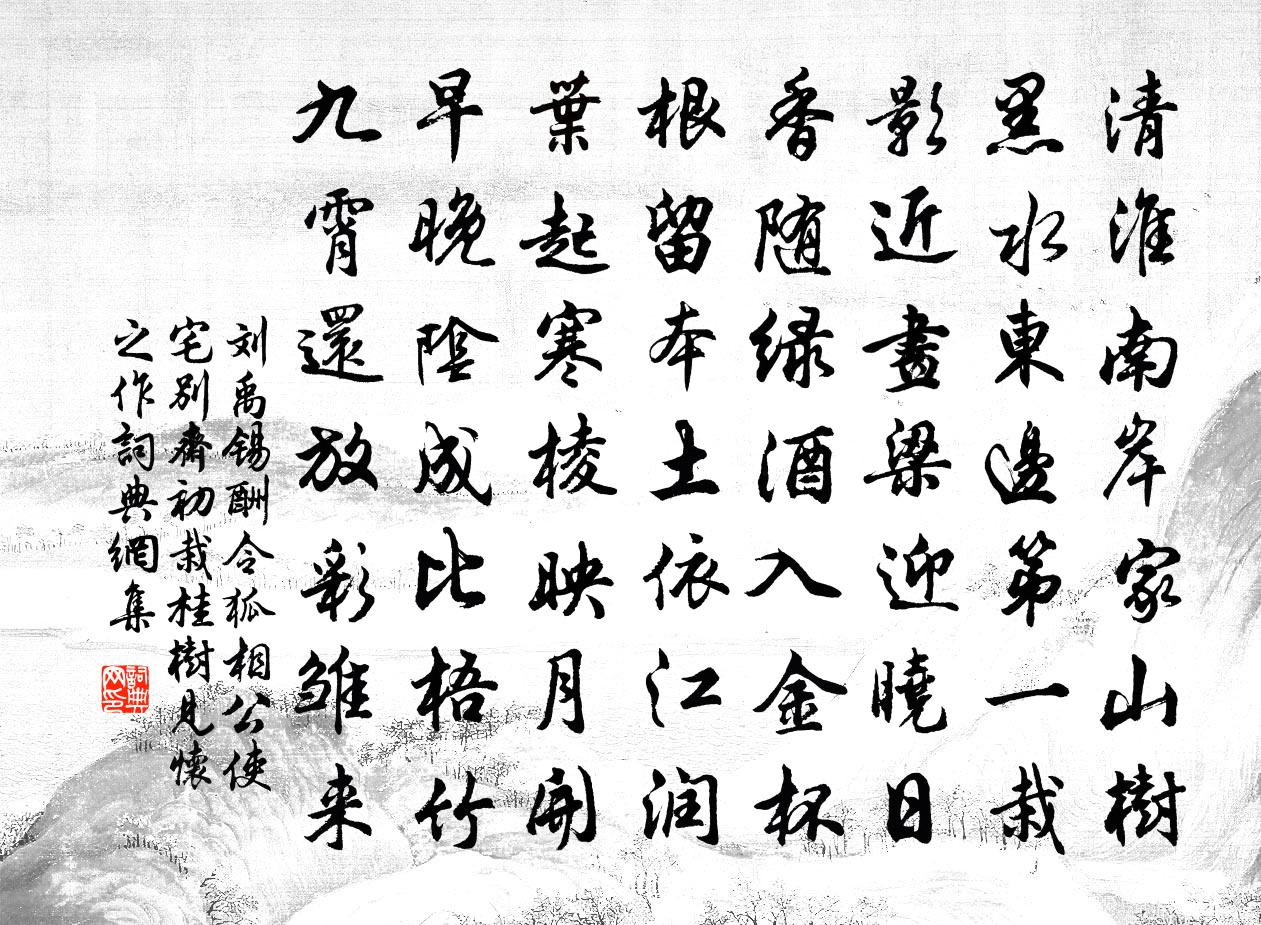 清淮南岸家山樹
黑水東邊第一栽
影近畫梁迎曉日
香随绿酒入金杯
根留本土依江润
葉起寒棱映月開
早晚陰成比梧竹
九霄還放彩雏来
刘禹锡酬令狐相公使
宅别齋初栽桂樹見懷
之作詞典網集
詞典
网印